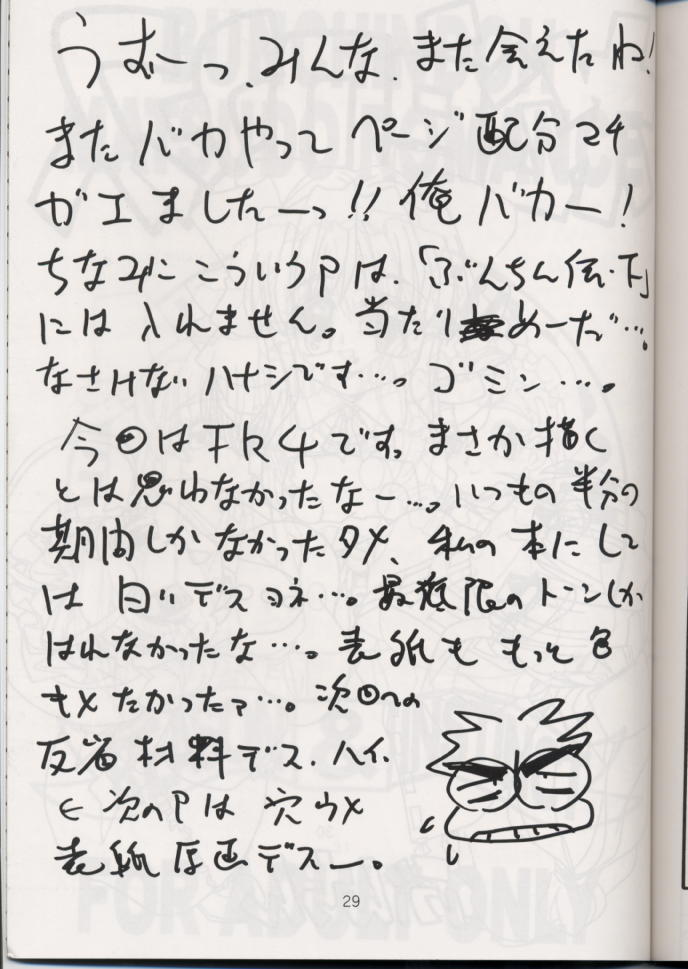 うむーっ、みんな、また会えたね!
またバカやってページ配分マチ
ガエましたーっ!!俺バカー!
ちなみにこういうPは、「ぶんちん伝・下」
には入れません。当たりめーだ…。
なさけないハナシです…。ゴミン…。
今回はFR4です。まさか描く
とは思わなかったなー…。いつもの半分の
期間しかなかったタメ、私の本にして
は白いデスヨネ…。最低限のトーンしか
はれなかったな…。表紙ももっと色
キメたかったァ…。次回への
反省材料デス、ハイ、
←次のPは穴ウメ
表紙原画デスー。
29
FOR ADULT ONLY